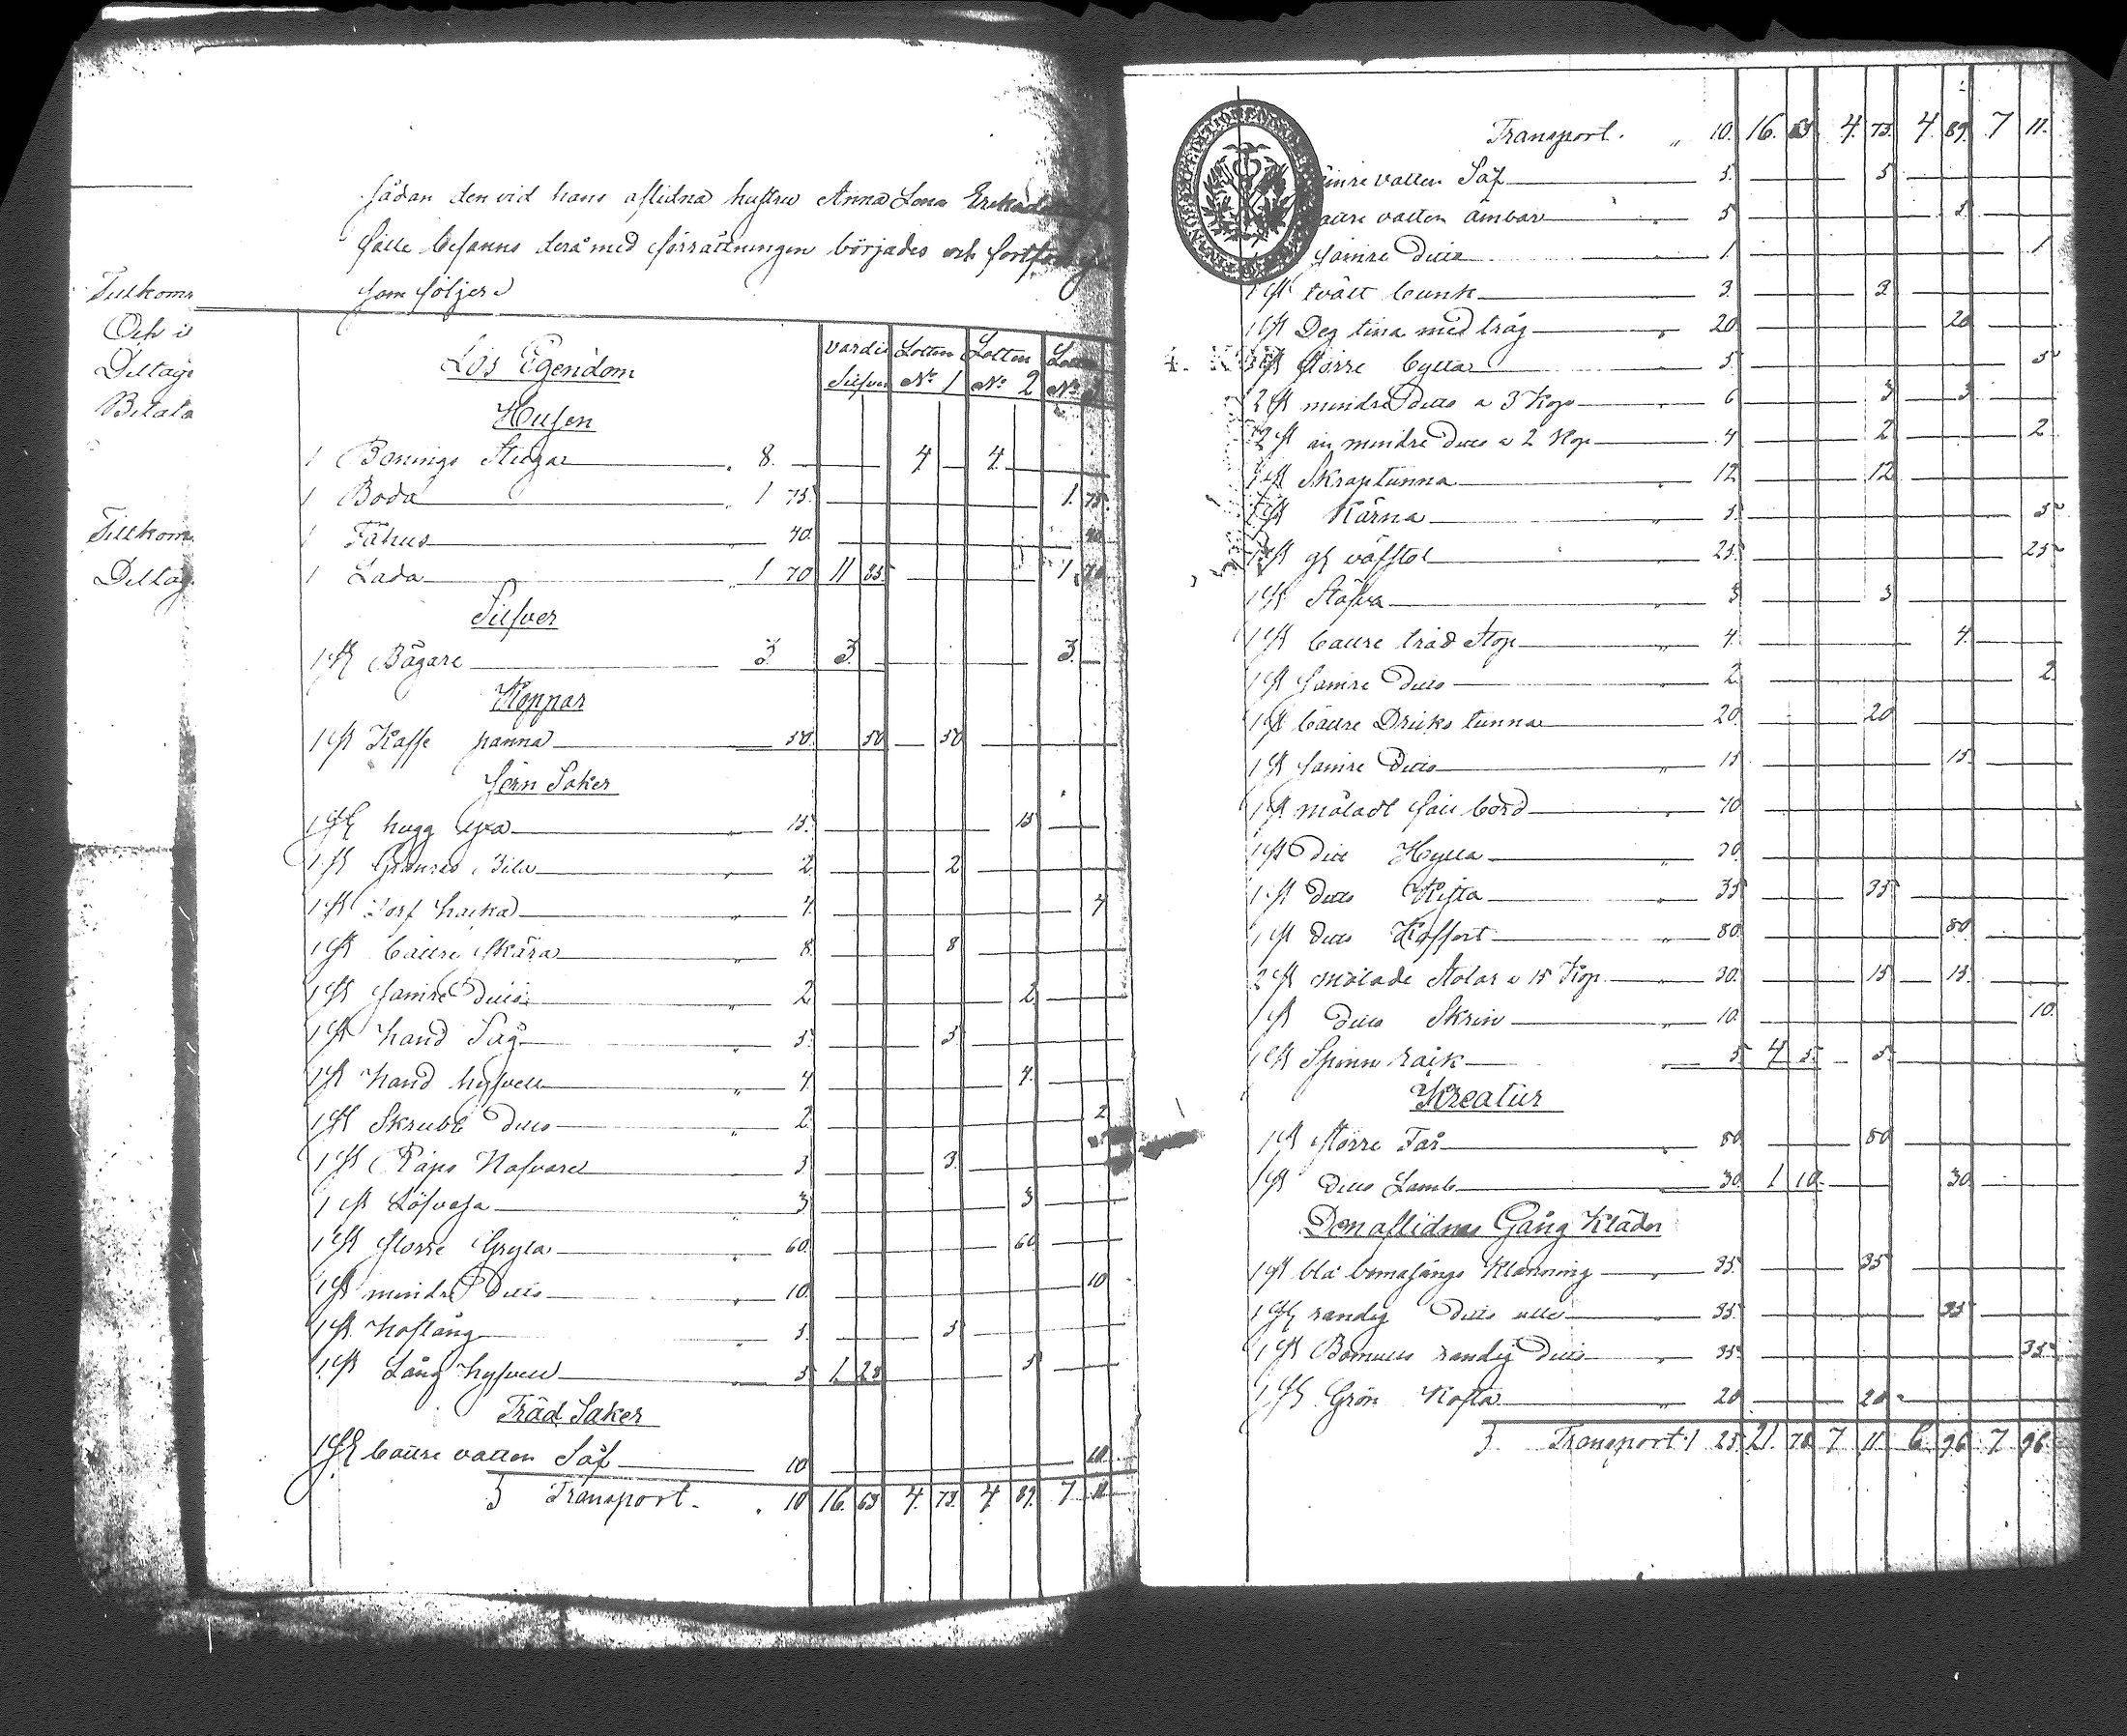 sådan den vid hans aflidna hustru Anna Lena
fälle befanns derå med förrättningen börjades och
som följer
Tillkom
Och i
Deltag
Betala
Tillkom
Deltag
Lös Egendom
Värde Silfver Lotten No 1 Lotten No 2 Lotten No
Husen
1 Bonings Stuga 8. 4 4
1 Boda 1 75 1. 75
1 Fähus 40 40
1 Lada 1 70 11 85 1 70
Silfver
1 st Bägare 3 3. 3.
Koppar
1 st Kaffe panna 50 50 50
Jern Saker
1 st hugg yxa 15 15
1 st Bila 2 2
1 st Torf hacka 4 4
1 st bättre Skära 8 8
1 st sämre Ditto 2 2
1 st hand Såg 5 5
1 st hand hyfvell 4 4
1 st Skrubb Ditto 2 2
1 st Räps Nafvare 3 3
1 st Löfyxa 3 3
1 st större Gryta 60 60
1 st mindre Ditto 10 10
1 st Hoftång 5 5
1 st Lång hyfvell 5 1 28 5
Träd Saker
1 st bättre vatten Så 10 10
Transport. 10 16. 63 4. 73. 4 89. 7 11
Transport. 10. 16. 63 4. 73. 4. 89. 7 11.
vatten Så 5. 5
vatten ämbar 5 5
sämre Ditto 1. 1
1 st tvätt bunk 3 3
1 st Deg tina med tråg 20 20
st större bytta 5 5
2 st mindre Ditto a 3 Kop 6 3 3
2 st än mindre Ditto a 2 Kop 4 2 2
1 st Skraptunna 12 12
1 st Kärna 5 5
1 st väfstol 25 25
1 st Stäfva 3 3
1 st bättre träd Stop 4 4
1 st sämre Ditto 2 2
1 st bättre Dricks tunna 20 20
1 st sämre Ditto 15 15
1 st måladt bord 70
1 st Ditto Hylla 20
1 st Ditto Kista 35 35
1 st Ditto Koffert 80 80
2 st målade Stolar a 15 Kop. 30. 15 15
1 st Ditto Skrin 10. 10.
1 st Spinn råck 5 4 5 5
Kreatur
1 st större Får 80 80
1 st Ditto Lamb 30 1 10 30
Den aflidnas Gång Kläder
1 st blå Klänning 35 35
1 st randig Ditto ulle 35 35
1 st Bomulls randig Ditto 35 35
1 st Grön Kofta 20 20
Transport 1 25 21. 78 7 11 6 96 7 96